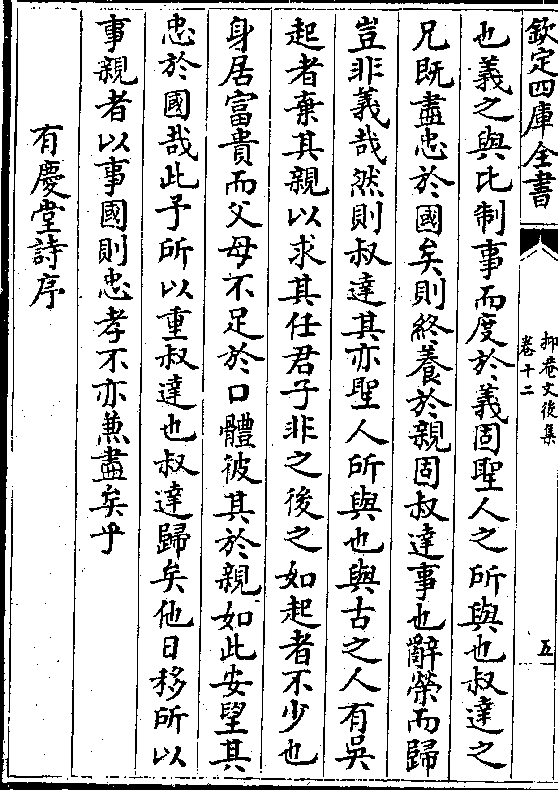 欽定四庫全書
抑菴文後集
卷十二
五
也義之與比制事而度於義固聖人之所與也叔達之
兄既盡忠於國矣則終養於親固叔達事也辭榮而歸
豈非義哉然則叔達其亦聖人所與也與古之人有吳
起者棄其親以求其任君子非之後之如起者不少也
身居富貴而父母不足於口體彼其於親如此安望其
忠於國哉此予所以重叔達也叔達歸矣他日移所以
事親者以事國則忠孝不亦兼盡矣乎
有慶堂詩序